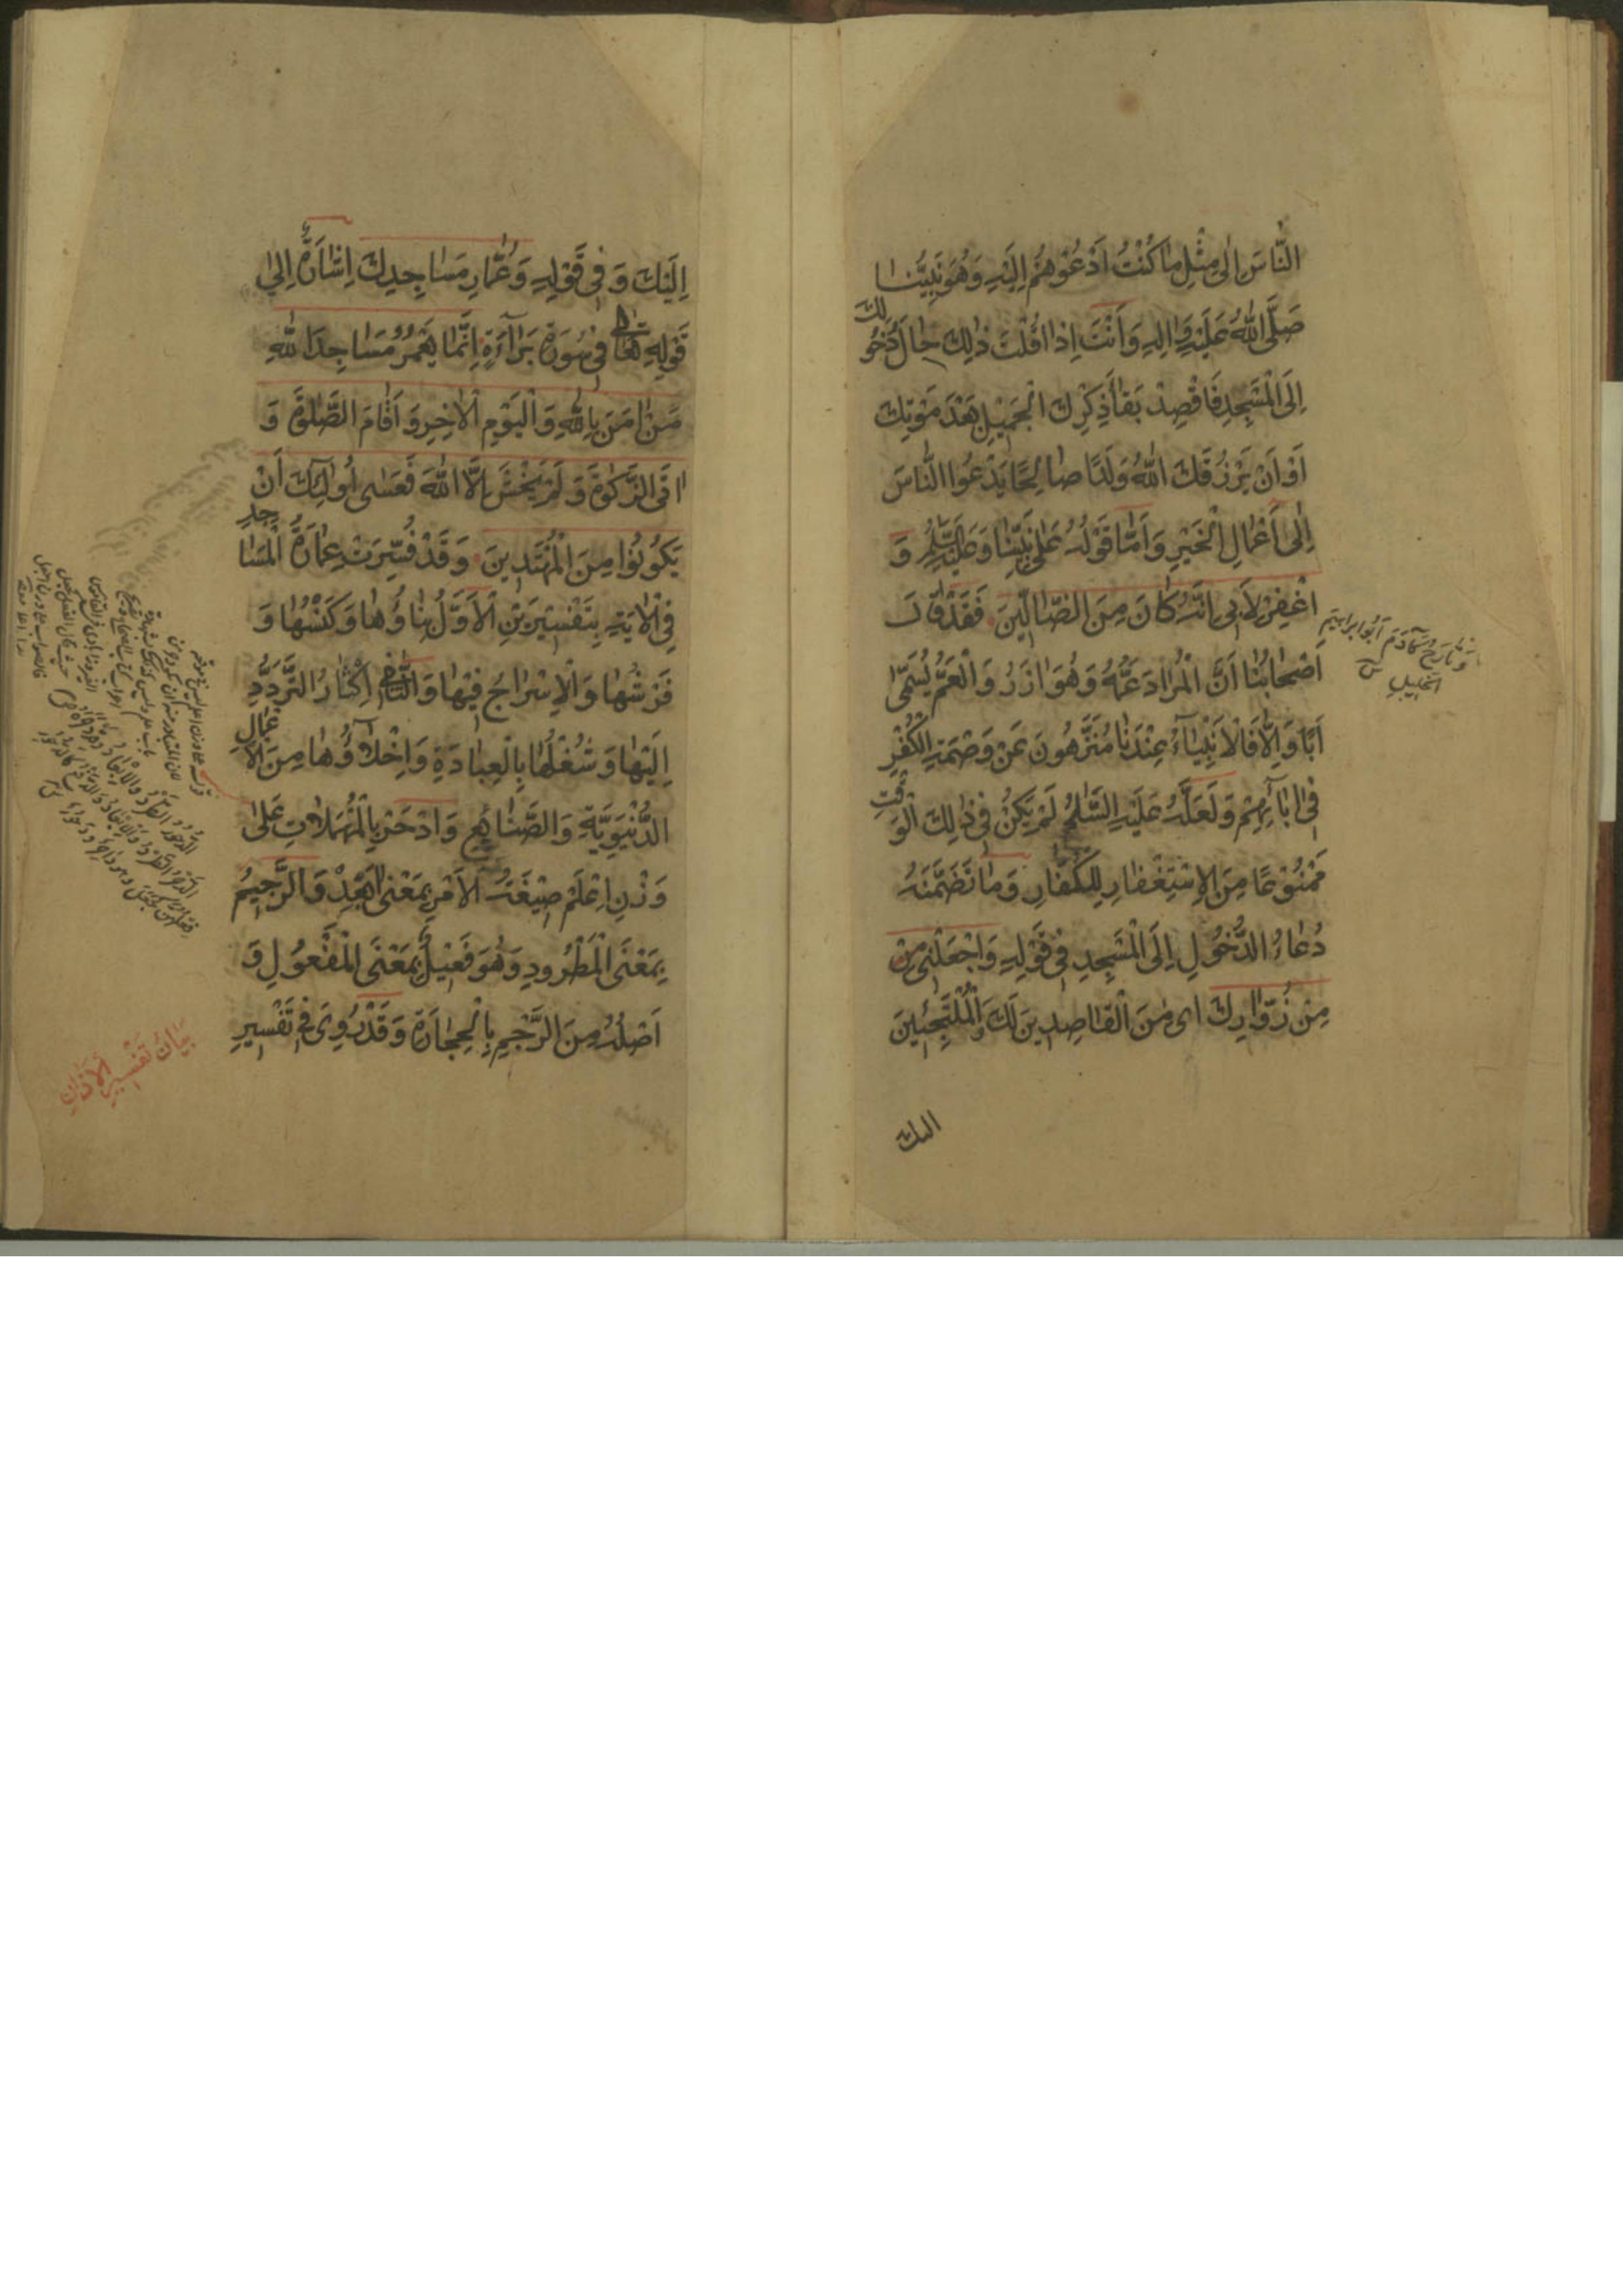 النَّاسَ اِلٰى مِثْلِ مٰا كُنْتُ اَدْعُوهُمْ اِلَيْهِ وَهُوَ نَبِيُّنٰا
صَلَّى اللّٰهُ عَلَيْهِ وَاٰلِهِ وَاَنْتَ اِذٰا قُلْتَ ذٰلِكَ حٰالَ دُخُولِكَ
اِلَى الْمَسْجِدِ فَاقْصِدْ بَقٰاءَ ذِكْرِكَ الْجَمِيْلِ بَعْدَ مَوْتِكَ
اَوْ اَنْ يَرْزُقَكَ اللّٰهُ وَلَدًا صٰالِحًا يَدْعُوا النّٰاسَ
اِلٰى اَعْمٰالِ الْخَيْرِ وَاَمّٰا قَوْلُهُ عَلٰى نَبِيِّنٰا وَعَلَيْهِ السَّلٰمُ وَ
اغْفِرْ لِاَبٖى اِنَّهُ كٰانَ مِنَ الضّٰالّٖينَ فَقَدْ قٰالَ
اَصْحٰابُنٰا اَنَّ الْمُرٰادَ عَمُّهُ وَهُوَ اٰزَرُ وَالْعَمُّ يُسَمّٰى
اَبًا وَاِلّٰا فَالْاَنْبِيٰآءُ عِنْدَنٰا مُنَزَّهُونَ عَنْ وَصْمَةِ الْكُفْرِ
فٖى اٰبٰآئِهِمْ وَلَعَلَّهُ عَلَيْهِ السَّلٰمُ لَمْ يَكُنْ فٖى ذٰلِكَ الْوَقْتِ
مَمْنُوْعًا مِنَ الْاِسْتِغْفٰارِ لِلْكُفّٰارِ وَمٰا تَضَمَّنَهُ
دُعٰاءُ الدُّخُولِ اِلَى الْمَسْجِدِ فٖى قَوْلِهِ وَاجْعَلْنٖى مِنْ
مِنْ زُوّٰارِكَ اى مِنَ الْقٰاصِدٖينَ لَكَ وَالْمُلْتَجِئٖينَ
وَتٰارَخُ كٰادَمَ اَبُو اِبْرٰاهٖيمَ
الْخَلٖيلِ
اليك
اِلَيْكَ وَفٖى قَوْلِهِ وَعُمّٰارِ مَسٰاجِدِكَ اِشٰارَةٌ اِلٰى
قَوْلِهِ تَعٰالٰى فٖى سُورَةِ بَرٰآءَةِ اِنَّمٰا يَعْمُرُ مَسٰاجِدَ اللّٰهِ
مَنْ اٰمَنَ بِاللّٰهِ وَالْيَوْمِ الْاٰخِرِ وَاَقٰامَ الصَّلٰوةَ وَ
اٰتَى الزَّكٰوةَ وَلَمْ يَخْشَ اِلَّا اللّٰهَ فَعَسٰى اُولٰئِكَ اَنْ
يَكُونُوا مِنَ الْمُهْتَدٖينَ وَقَدْ فُسِّرَتْ عِمٰارَةُ الْمَسٰاجِدِ
فِى الْاٰيَةِ بِتَفْسٖيرَيْنِ الْاَوَّلُ بِنٰاؤُهٰا وَكَنْسُهٰا وَ
فَرْشُهٰا وَالْاِسْرٰاجُ فٖيهٰا وَالثّٰانٖى اِكْثٰارُ التَّرَدُّدِ
اِلَيْهٰا وَشُغْلُهٰا بِالْعِبٰادَةِ وَاِخْلٰآؤُهٰا مِنَ الْاَعْمٰالِ
الدُّنْيَوِيَّةِ وَالصَّنٰائِعِ وَادْحَرْ بِالْمُهْمَلٰاتِ عَلٰى
وَزْنِ اِعْلَمْ صٖيْغَةُ الْاَمْرِ بِمَعْنٰى اَبْعِدْ وَالرَّجٖيمُ
بِمَعْنَى الْمَطْرُودِ وَهُوَ فَعٖيْلٌ بِمَعْنَى الْمَفْعُولِ وَ
اَصْلُهُ مِنَ الرَّجْمِ بِالْحِجٰارَةِ وَقَدْ رُوِىَ فٖى تَفْسٖيرِ
بَيٰانُ تَفْسٖيرِ الْاَذٰانِ